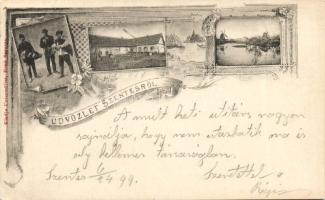 ÜDVÖZLET SZENTESRŐL
A mult heti utitárs nagyon
sajnálja, hogy nem utazhatik ma is
oly kellemes társaságban.
Szentes 99. Szeretettel